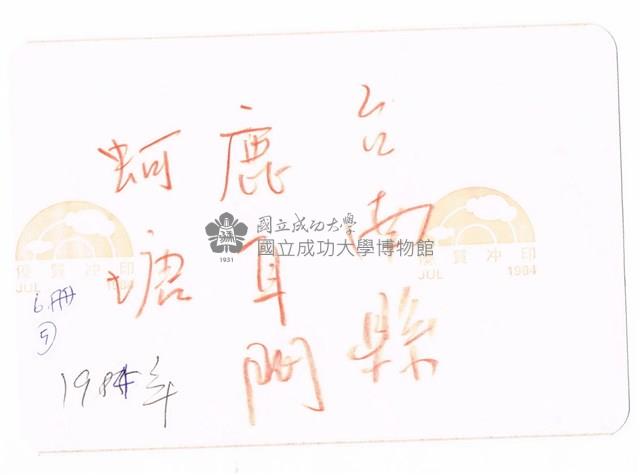 台南縣
鹿耳門
蚵塘
國立成功大學
國立成功大學博物館
1931
優質沖印
JUL 1984
優質沖印
JUL 1984
6冊
5
1984年